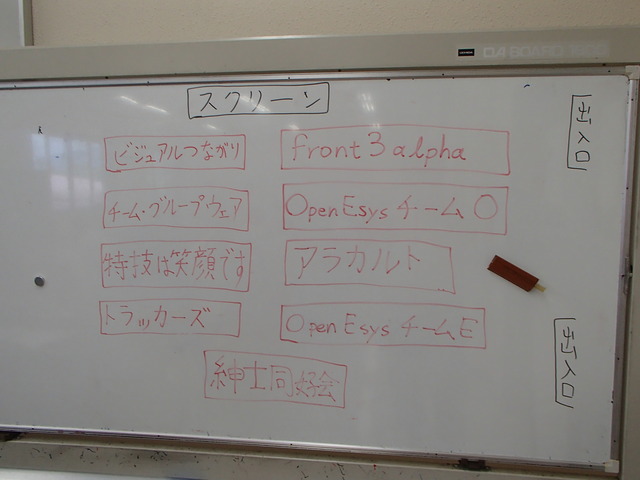 スクリーン
出入口
ビジュアルつながり
front 3 alpha
チーム・グループウェア
OpenEsys チーム O
特技は笑顔です
アラカルト
トラッカーズ
OpenEsys チームE
出入口
紳士同好会